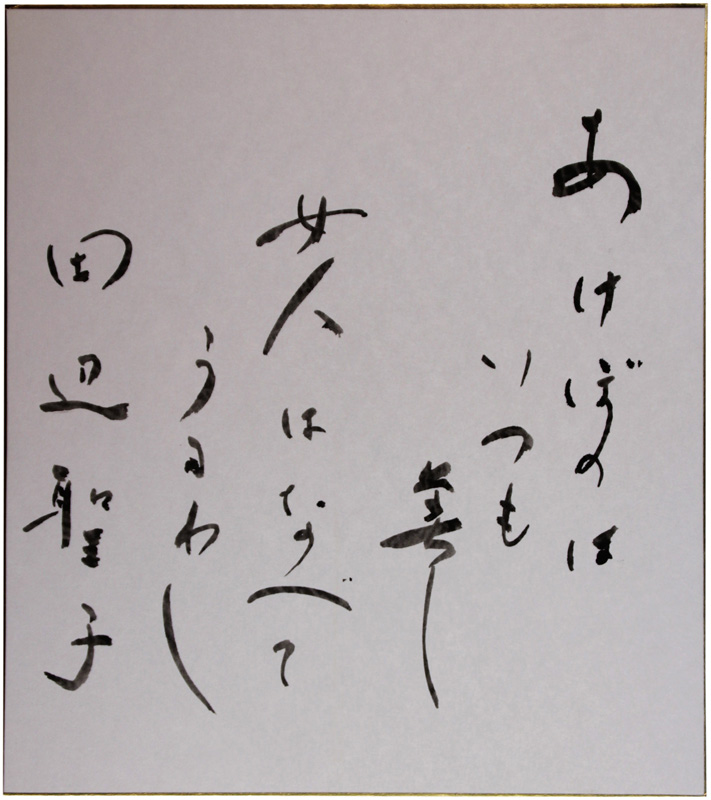 あけぼのは
いつも
美し
女人はなべて
うるわし
田辺聖子